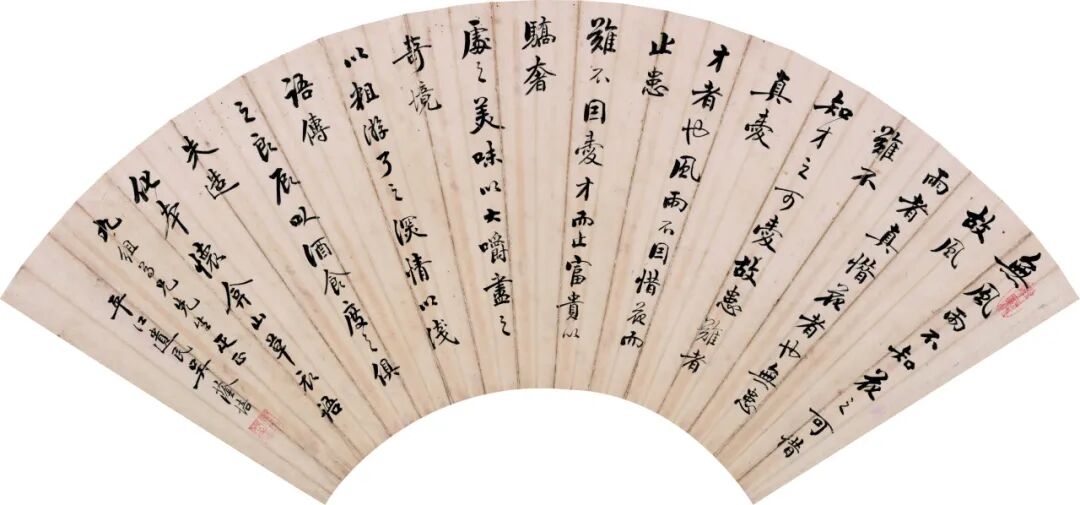 無風雨不知花之可惜
故風
雨者真惜花者也無患
難不
知才之可愛故患難者
真愛
才者也風雨不因惜花而
止患
難不因愛才而止富貴以
驕奢
處之美味以大嚼盡之
奇境
以粗游了之深情以淺
語傳
之良辰以酒食度之俱
失造
化本懷余山草衣語
兄先生正
平江遺民